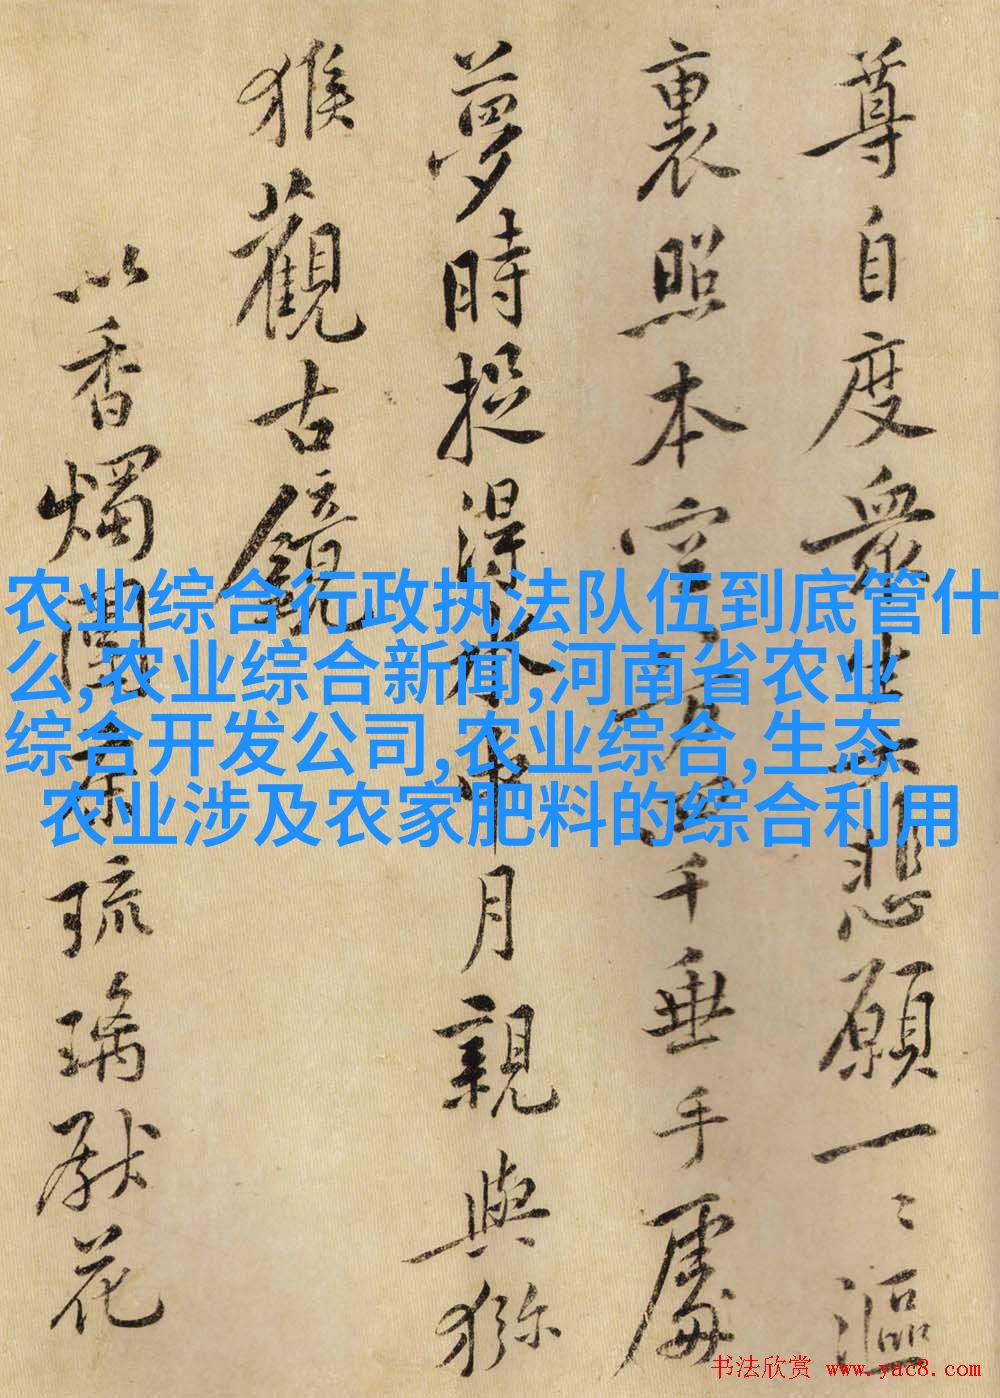 尊自度眾生悲願一〻漚
裏照本空八万四千垂手處
夢時捉得水中月親與獼
猴觀古鏡
以香燭團茶琉璃獻花
农业综合行政执法队伍到底管什
么,农业综合新闻,河南省农业
综合开发公司,农业综合,生态
农业涉及农家肥料的综合利用
书法欣赏 www.yac8.com